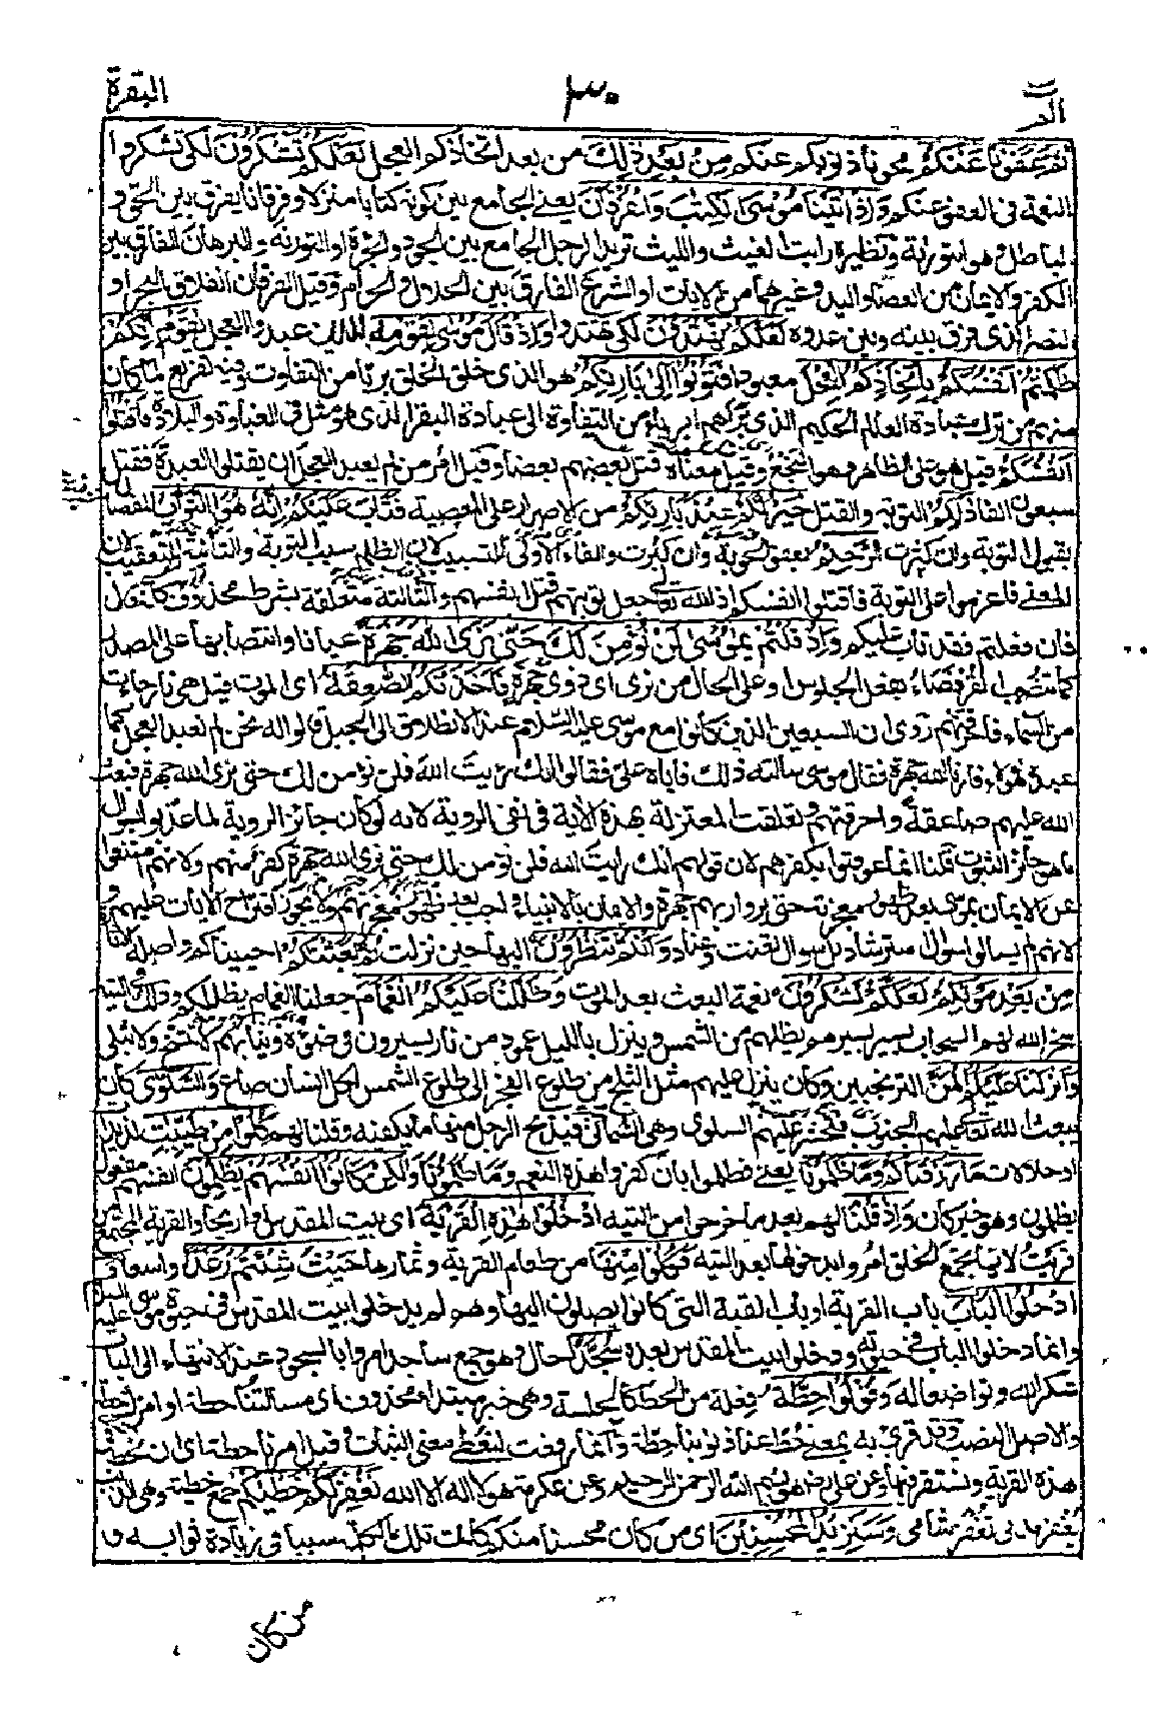 الم
٣٠
البقرة
ثُمَّ عَفَوْنَا عَنْكُمْ محونا ذنوبكم عنكم مِنْ بَعْدِ ذٰلِكَ من بعد اتخاذكم العجل لَعَلَّكُمْ تَشْكُرُوْنَ لكى تشكروا
النعمة فى العفو عنكم وَاِذْ اٰتَيْنَا مُوْسَى الْكِتٰبَ وَالْفُرْقَانَ يعنى الجامع بين كونه كتابا منزلا وفرقانا يفرق بين الحق و
الباطل وهو التوراة ونظيره رايت الغيث والليث تريد الرجل الجامع بين الجود والجرأة او التورٰىة والبرهان الفارق بين
الكفر والايمان من العصا واليد وغيرهما من الايات او الشرع الفارق بين الحلال والحرام وقيل الفرقان انفلاق البحر او
النصر الذى فرق بينه وبين عدوه لَعَلَّكُمْ تَهْتَدُوْنَ لكى تهتدوا وَاِذْ قَالَ مُوْسٰى لِقَوْمِهٖ للذين عبدوا العجل يٰقَوْمِ اِنَّكُمْ
ظَلَمْتُمْ اَنْفُسَكُمْ بِاتِّخَاذِكُمُ الْعِجْلَ معبودا فَتُوْبُوْٓا اِلٰى بَارِئِكُمْ هو الذى خلق الخلق بريا من التفاوت وفيه تقريع لما كان
منهم من ترك عبادة العالم الحكيم الذى برأهم ابرياء من التفاوت الى عبادة البقر الذى هو مثل فى الغباوة والبلادة فَاقْتُلُوْٓا
اَنْفُسَكُمْ قيل هو على الظاهر وهو البخع وقيل معناه قتل بعضهم بعضا وقيل امر من لم يعبد العجل ان يقتلوا العبدة فقتل
سبعون الفا ذٰلِكُمْ التوبة والقتل خَيْرٌ لَّكُمْ عِنْدَ بَارِئِكُمْ من الاصرار على المعصية فَتَابَ عَلَيْكُمْ اِنَّهٗ هُوَ التَّوَّابُ المفضال
بقبول التوبة وان كثرت الرَّحِيْمُ بعفو الحوبة وان كبرت والفاء الاولى للتسبيب لان الظلم سبب التوبة والثانية للتعقيب لان
المعنى فاعزموا على التوبة فاقتلوا انفسكم اذ الله تعالى جعل توبتهم قتل انفسهم والثالثة متعلقة بشرط محذوف كانه قال
فان فعلتم فقد تاب عليكم وَاِذْ قُلْتُمْ يٰمُوْسٰى لَنْ نُّؤْمِنَ لَكَ حَتّٰى نَرَى اللّٰهَ جَهْرَةً عيانا وانتصابها على المصدر
كما تنتصب القرفصاء بفعل الجلوس او على الحال من نرى اى ذوى جهرة فَاَخَذَتْكُمُ الصّٰعِقَةُ اى الموت قيل هى نار جاءت
من السماء فاحرقتهم روى ان السبعين الذين كانوا مع موسى عليه السلام عند الانطلاق الى الجبل قالوا له نحن لم نعبد العجل كما
عبده هؤلاء فارنا الله جهرة فقال موسى سالته ذلك فاباه على فقالوا انك رايت الله فلن نؤمن لك حتى نرى الله جهرة فبعث
الله عليهم صاعقة واحرقتهم وتعلقت المعتزلة بهذه الاية فى نفى الروية لانه لو كان جائز الروية لما عذبوا بسوال
ما هو جائز الثبوت قلنا انما عوقبوا بكفرهم لان قولهم انك رايت الله فلن نؤمن لك حتى نرى الله جهرة كفر منهم ولانهم امتنعوا
عن الايمان بموسى بعد ظهور معجزته حتى يروا ربهم جهرة والايمان بالانبياء واجب بعد ظهور معجزتهم ولا يجوز اقتراح الايات عليهم و
لانهم لم يسالوا سوال استرشاد بل سوال تعنت وعناد وَاَنْتُمْ تَنْظُرُوْنَ اليها حين نزلت ثُمَّ بَعَثْنٰكُمْ احييناكم واصله
مِنْ بَعْدِ مَوْتِكُمْ لَعَلَّكُمْ تَشْكُرُوْنَ نعمة البعث بعد الموت وَظَلَّلْنَا عَلَيْكُمُ الْغَمَامَ جعلنا الغمام يظلكم وذلك فى التيه
سخر الله لهم السحاب يسير بسيرهم يظلهم من الشمس وينزل بالليل عمود من نار يسيرون فى ضوئه وثيابهم لا تتسخ ولا تبلى
وَاَنْزَلْنَا عَلَيْكُمُ الْمَنَّ الترنجبين وكان ينزل عليهم مثل الثلج من طلوع الفجر الى طلوع الشمس لكل انسان صاع وَالسَّلْوٰى كان
يبعث الله تعالى عليهم الجنوب فتحشر عليهم السلوى وهى السمانى فيذبح الرجل منها ما يكفيه وقلنا لهم كُلُوْا مِنْ طَيِّبٰتِ لذيذات
او حلالات مَا رَزَقْنٰكُمْ وَمَا ظَلَمُوْنَا يعنى فظلموا بان كفروا هذه النعم وما ظلمونا وَلٰكِنْ كَانُوْٓا اَنْفُسَهُمْ يَظْلِمُوْنَ انفسهم مفعول
يظلمون وهو خبر كان وَاِذْ قُلْنَا لهم بعد ما خرجوا من التيه ادْخُلُوْا هٰذِهِ الْقَرْيَةَ اى بيت المقدس او اريحا والقرية المجتمع من
قريت لانها تجمع الخلق امروا بدخولها بعد التيه فَكُلُوْا مِنْهَا من طعام القرية وثمارها حَيْثُ شِئْتُمْ رَغَدًا واسعا وَ
ادْخُلُوا الْبَابَ باب القرية او باب القبة التى كانوا يصلون اليها وهم لم يدخلوا بيت المقدس فى حيوة موسى عليه السلام
وانما دخلوا الباب فى حيوته ودخلوا بيت المقدس بعده سُجَّدًا حال وهو جمع ساجد امروا بالسجود عند الانتهاء الى الباب
شكرا لله وتواضعا له وَقُوْلُوْا حِطَّةٌ فعلة من الحط كالجلسة وهى خبر مبتدأ محذوف اى مسالتنا حطة او امرك حطة
والاصل النصب وقد قرئ به بمعنى حط عنا ذنوبنا حطة وانما رفعت لتعطى معنى الثبات وقيل امرنا حطة اى ان نحط فى
هذه القرية ونستقر فيها وعن على رض هو بسم الله الرحمن الرحيم وعن عكرمة هو لا اله الا الله نَغْفِرْ لَكُمْ خَطٰيٰكُمْ جمع خطيئة وهى الذنب
يُغْفَرْ مدنى تُغْفَرْ شامى وَسَنَزِيْدُ الْمُحْسِنِيْنَ اى من كان محسنا منكم كانت تلك الكلمة سببا فى زيادة ثوابه و
من كان